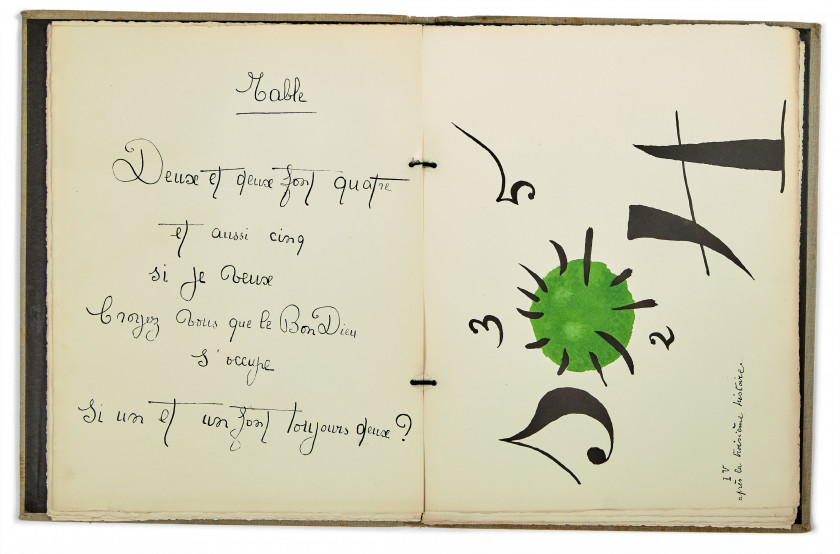 Table
Deux et deux font quatre
et aussi cinq
si je veux
Croyez vous que le Bon Dieu
s'occupe
Si un et un font toujours deux ?
5
3
2
2
IV
après la troisième histoire.